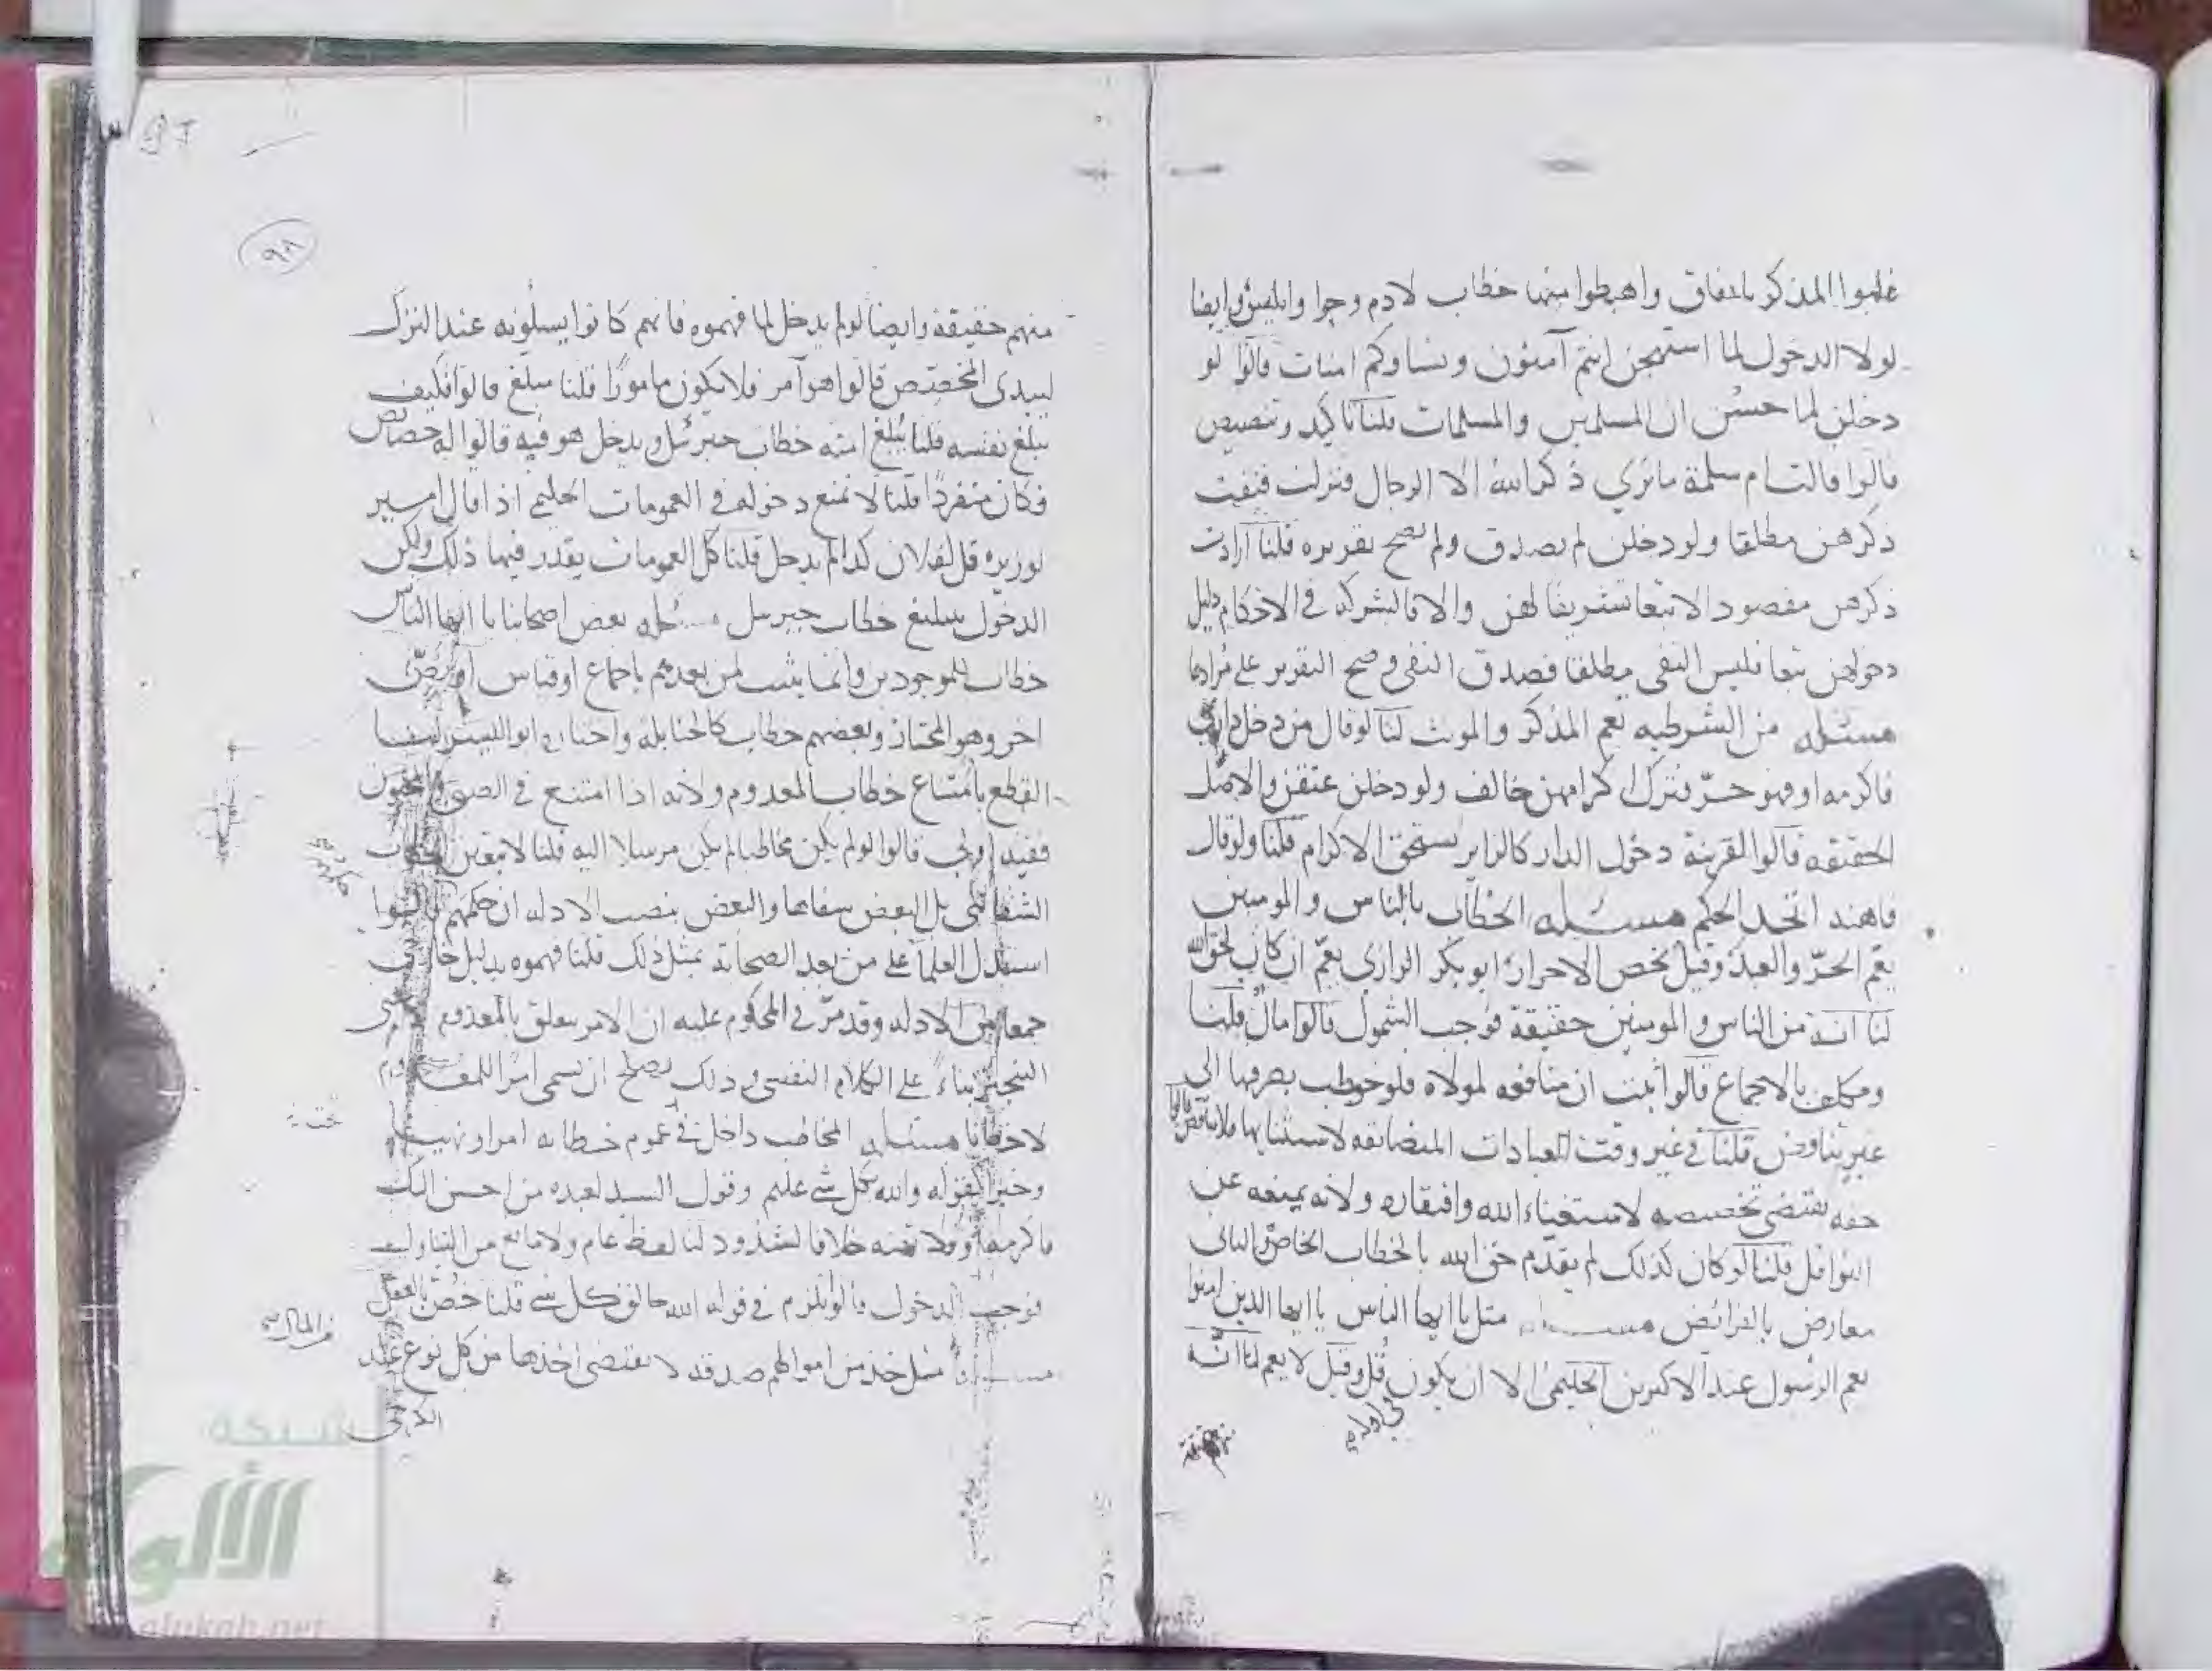 غلبوا المذكر باتفاق واهبطوا منها خطاب لادم وحوا وابليس وايضا
لولا الدخول لما استهجن انتم آمنون ونساوكم امنات قالوا لو
دخلن لما حسن ان المسلمين والمسلمات قلنا تاكيد وتنصيص
قالوا قالت ام سلمة ما نرى ذكر الله الا الرجال فنزلت فنفت
ذكرهن مطلقا ولو دخلن لم يصدق ولم يصح تقريره قلنا ارادت
ذكرهن مقصود الا تبعا تشريفا لهن والا فالشركه في الاحكام دليل
دخولهن تبعا فليس النفي مطلقا فصدق النفي وصح التقرير على مرادها
مسئله من الشرطيه تعم المذكر والمونث لنا لو قال من دخل داري
فاكرمه او فهو حر فترك اكرامهن خالف ولو دخلن عتقن والاصل
الحقيقه قالوا القرينة دخول الدار كالزاير يستحق الاكرام قلنا ولو قال
فاهنه اتحد الحكم مسئله الخطاب بالناس والمومنين
يعم الحر والعبد وقيل يخص الاحرار ابو بكر الرازي يعم ان كان لحق الله
لنا انه من الناس والمومنين حقيقة فوجب الشمول قالوا مال قلنا
ومكلف بالاجماع قالوا ثبت ان منافعه لمولاه فلو خوطب بصرفها الى
غيره تناقض قلنا في غير وقت العبادات المتضايقه لاستثنايها فلا تناقض قالوا
حقه يقتضي تخصيصه لاستغناء الله وافتقاره ولانه يمنعه عن
النوافل قلنا لو كان كذلك لم يقدم حق الله بالخطاب الخاص والثاني
معارض بالفرائض مسئله مثل يا ايها الناس يا ايها الذين امنوا
يعم الرسول عند الاكثرين الحليمي الا ان يكون قل وقيل لا يعم لنا انه
في اوله
٩٨
منهم حقيقة وايضا لو لم يدخل لما فهموه فانهم كانوا يسلونه عند الترك
ليبدي المخصص قالوا هو آمر فلا يكون مامورا قلنا مبلغ قالوا فكيف
يبلغ نفسه قلنا يبلغ امته خطاب جبرئل ويدخل هو فيه قالوا له خصائص
فكان منفردا قلنا لا تمنع دخوله في العمومات الحليمي اذا قال امير
لوزيره قل لفلان كذا لم يدخل قلنا كل العمومات يقدر فيها ذلك ولكن
الدخول بتبليغ خطاب جبرئيل مسئله بعض اصحابنا يا ايها الناس
خطاب للموجودين وانما يثبت لمن بعدهم باجماع او قياس او نص
اخر وهو المختار وبعضهم خطاب كالحنابلة واختاره ابو اليسر لنا
القطع بامتناع خطاب المعدوم ولانه اذا امتنع في الصبي والمجنون
ففيه اولى قالوا لو لم يكن مخاطبا لم يكن مرسلا اليه قلنا لا يتعين الخطاب
الشفاهي بل البعض شفاها والبعض بنصب الادله ان حكمهم قالوا
استدل العلما على من بعد الصحابة بمثل ذلك قلنا فهموه بدليل خارجي
جمعا بين الادله وقد مر في المحكوم عليه ان الامر يتعلق بالمعدوم
التنجيز بناء على الكلام النفسي وذلك يصلح ان يسمى امرا
لا خطابا مسئله المخاطب داخل في عموم خطابه امرا ونهيا
وخبرا كقوله والله بكل شي عليم وقول السيد لعبده من احسن اليك
فاكرمه او ولا تهنه خلافا لشذوذ لنا لفظ عام ولا مانع من التناول
فوجب الدخول قالوا يلزم في قوله الله خالق كل شي قلنا خص بالعقل
مسئله مثل خذ من اموالهم صدقه لا يقتضي اخذها من كل نوع عند
الكرخي
شبكة
الألوكة
alukah.net